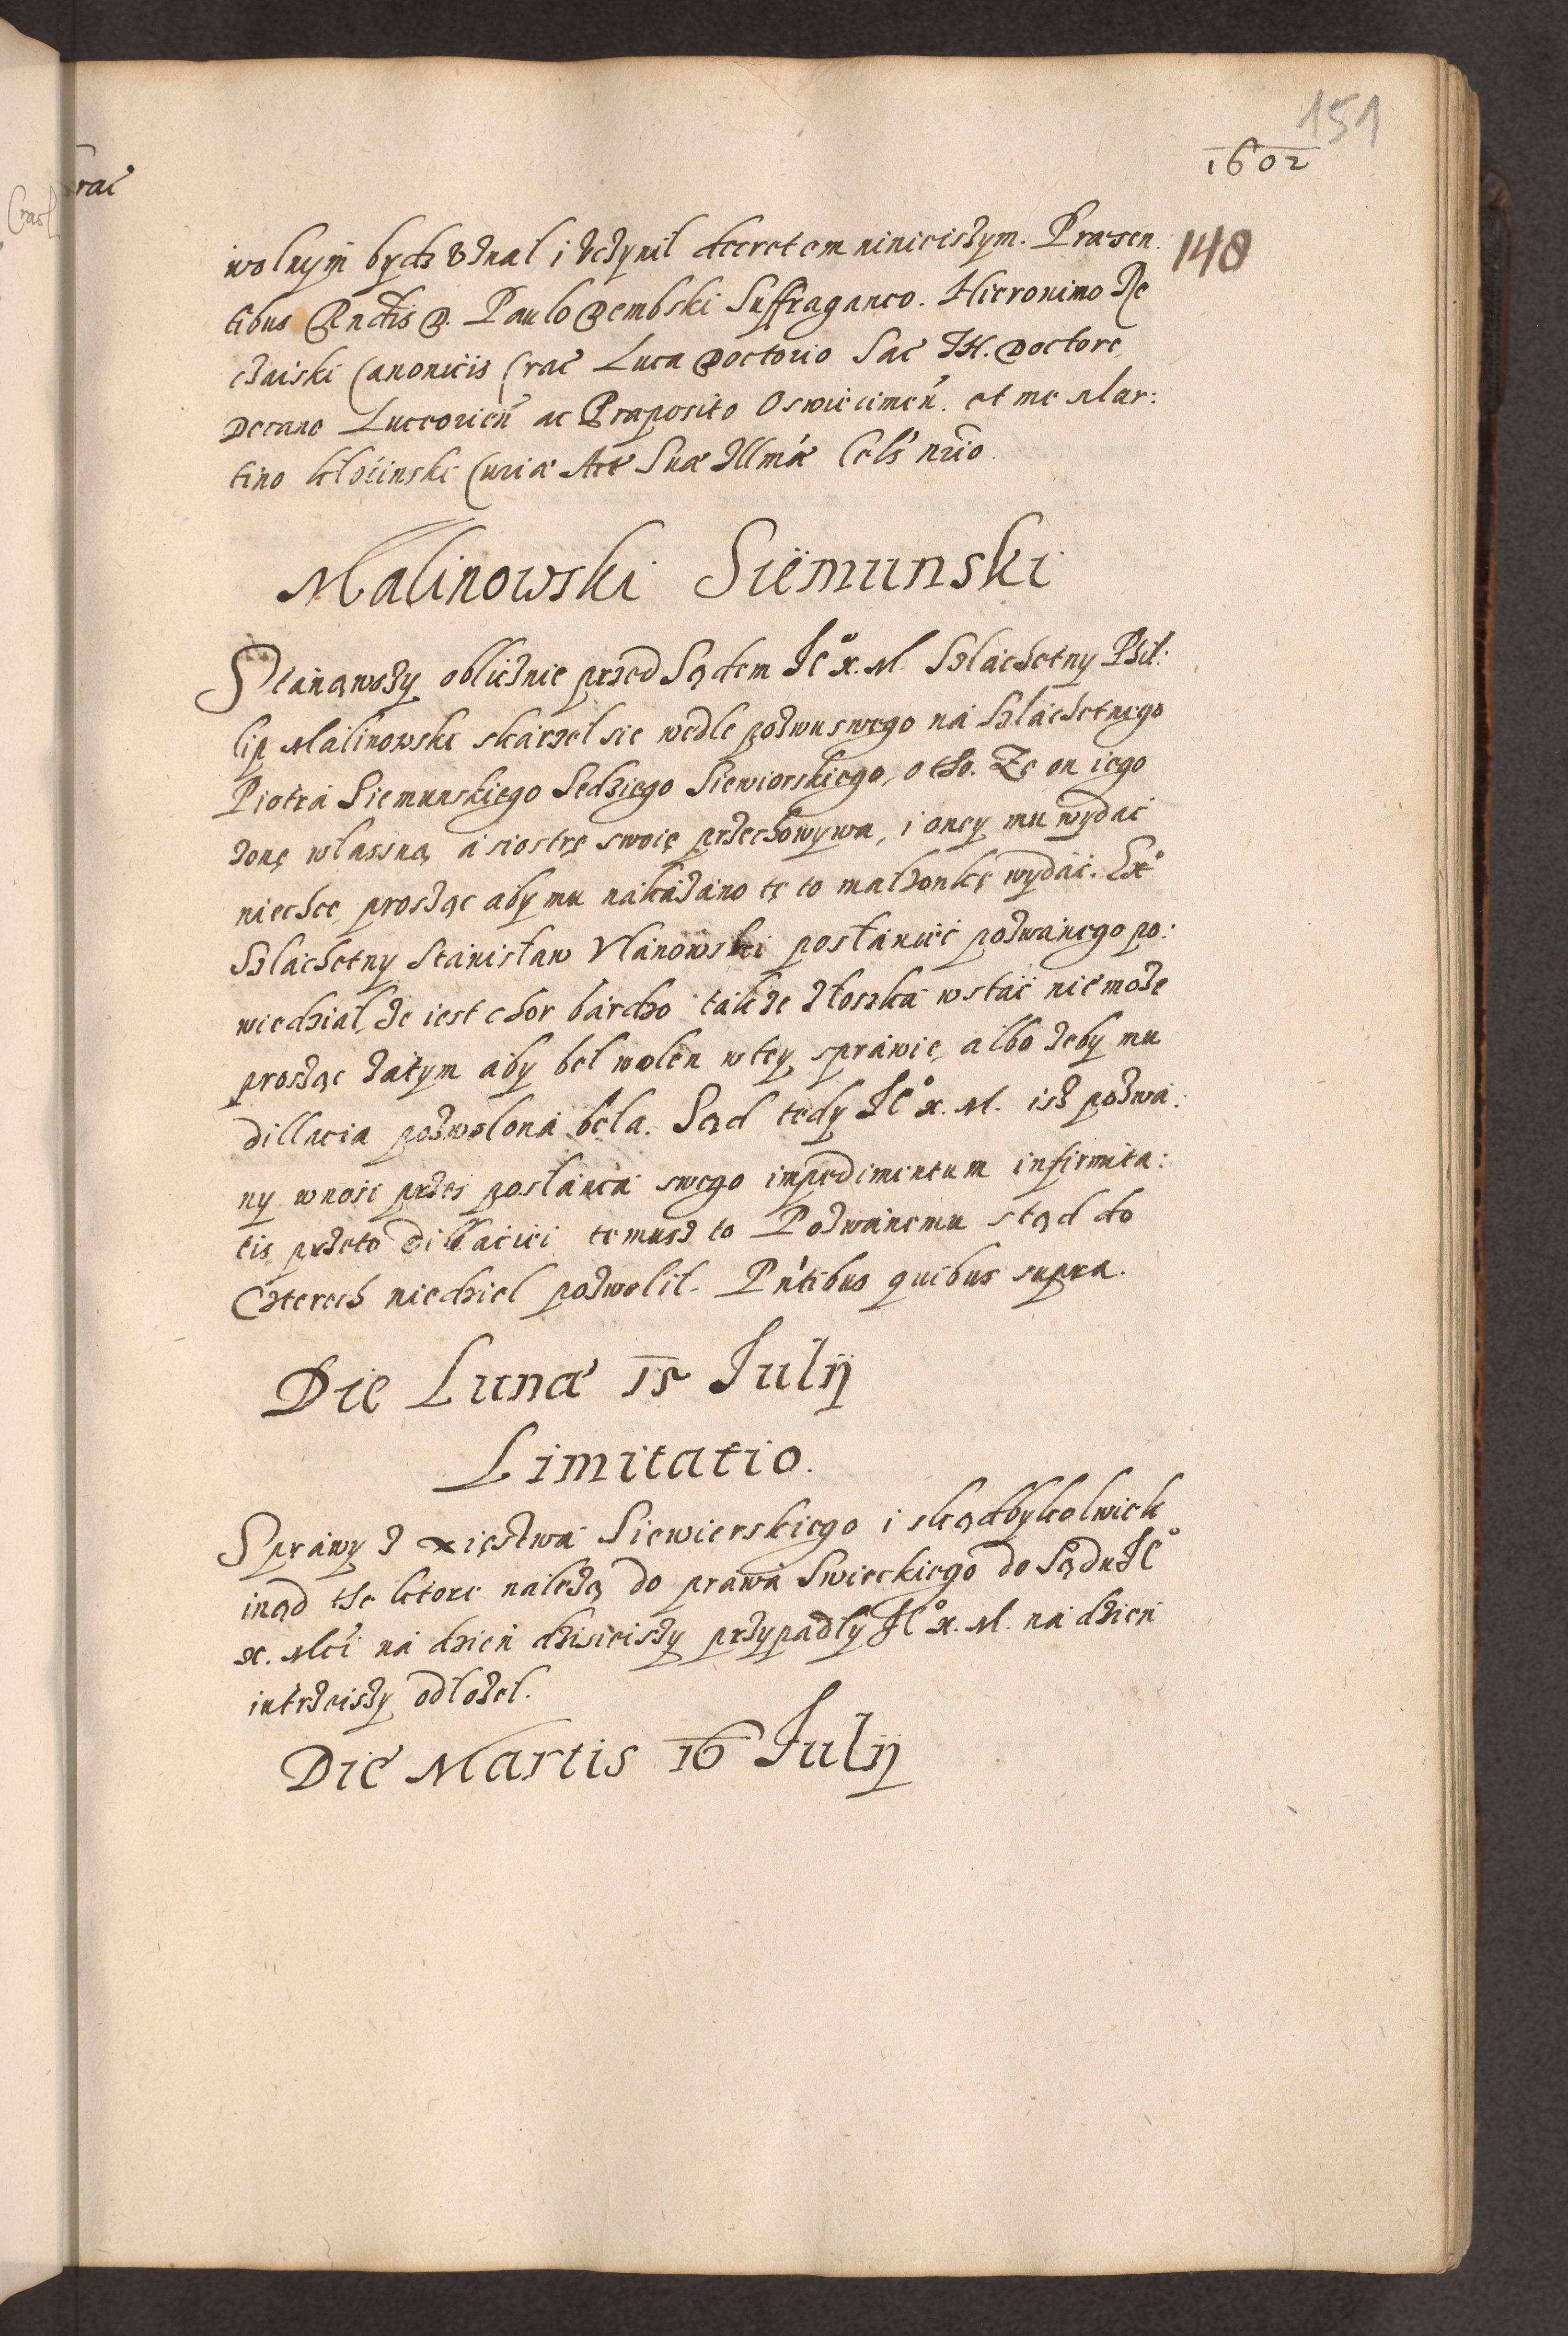 151
1602
148
wolnym bydz uznal i uczynil decretem ninieiszym. Præsen
tibus Rndis D. Paulo Dembski Suffraganeo. Hieronimo Re
czaiski Canonicis Crac Luca Doctorio Sac TH. Doctore
Decano Luceorien ac Præposito Oswiecimen. et me Mar:
tino Curiæ Suæ Illmæ Cels nrio
Malinowski Siemunski
Stanąwszy oblicznie przed Sądem Je° x. M. Szlachetny Phil:
lip Malinowski skarzel sie wedle pozwu swego na Szlachetnego
Piotra Siemunskiego Sedziego Siewiorskiego, o tho. Ze on iego
zonę wlassną a siostrę swoię przechowywa, i oney mu wydac
niechce, prosząc aby mu nakazano tę to malzonkę wydac. Ex°
Szlachetny Stanisław Vlanowski posłaniec pozwanego po:
wiedzial, ze iest chor bardzo takze złoszka wstac nie moze
prosząc zatym aby bel wolen w tey sprawie, albo zeby mu
dillacia pozwolona bela. Sąd tedy Je° x. M. isz pozwa:
ny wnosi przes poslanca swego impedimentum infirmita:
tis, przeto Dillaciei temusz to Pozwanemu stąd do
Czterech niedziel pozwolil. Pntibus quibus supra.
Die Lunæ 15 Julij
Limitatio.
Sprawy z xięstwa Siewierskiego i skądbykolwiek
inąd the ktore należą do prawa Swieckiego do Sądu Je°
x. Mci na dzien dzisieiszy przypadly Je° x. M. na dzien
iutrzeiszy odlozel.
Die Martis 16 Julij